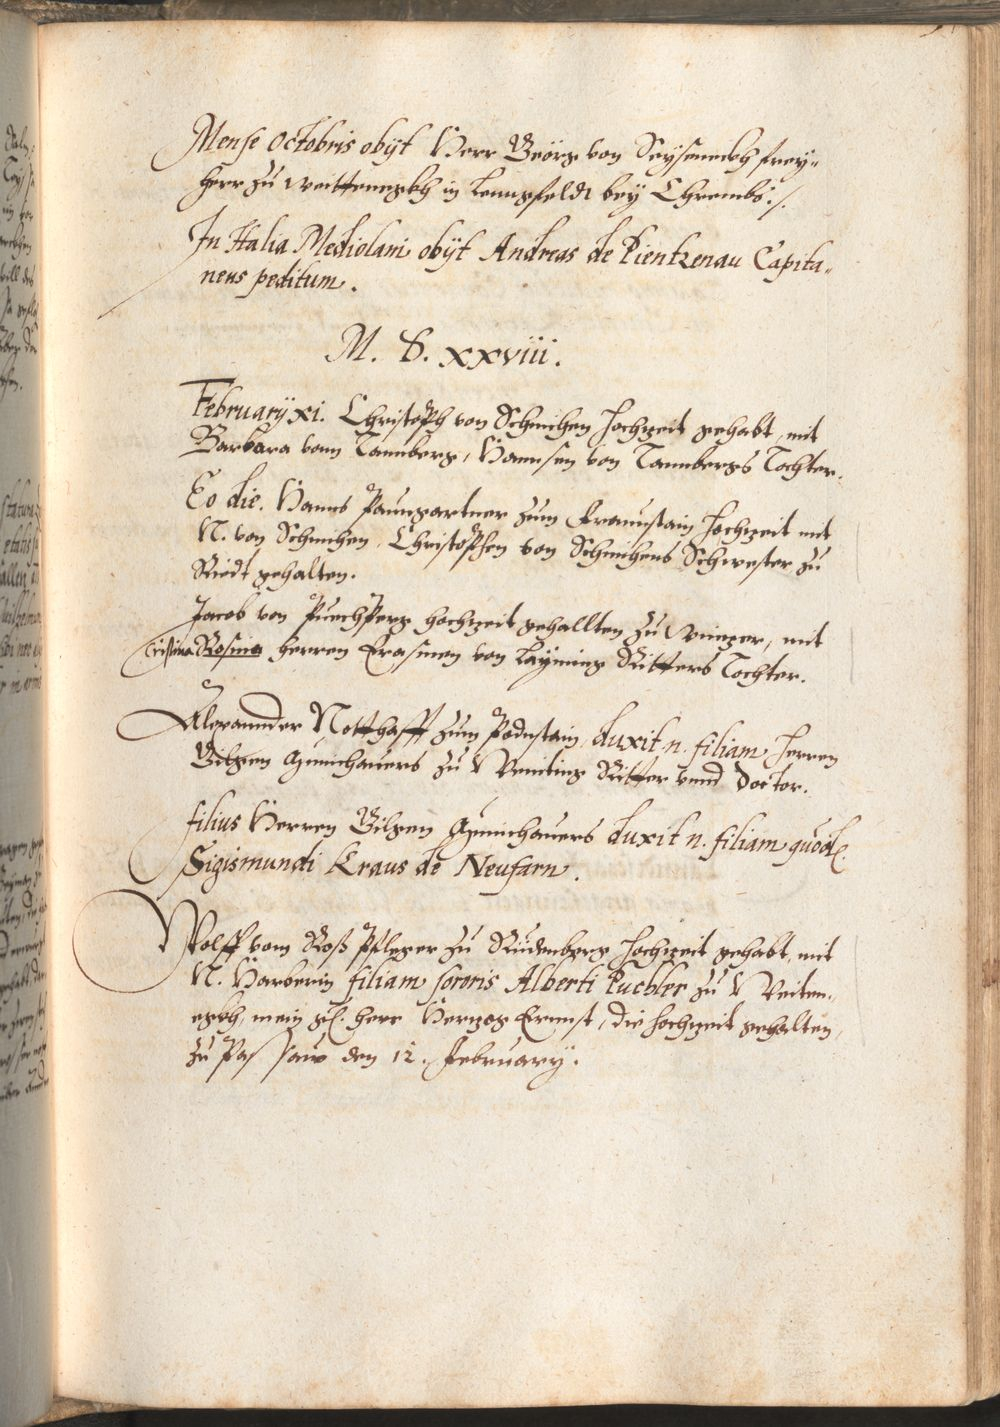 Mense Octobris obijt Herr Geörg von Seyseneckh frey„
herr zu Weittenegkh in Lenngfeldt bey Chrembs ./.
In Italia Mediolani obijt Andreas de Pientzenau Capita„
neus peditum .
M. D. xxviii.
Februarij xi. Christoph von Schmihen Hochzeit gehabt, mit
Barbara vom Tannberg, Hannsen von Tannbergs Tochter.
Eo die. Hanns Paungartner zum Fraunstain Hochzeit mit
N. von Schmihen, Christophen von Schmihens Schwester zu
Riedt gehalten.
Jacob von Puechperg hochzeit gehallten zu Winzer, mit
Cristina Rosina Herren Erasmen von Layming Ritters Tochter.
Alexannder Notthafft zum Podnstain, duxit n. filiam Herren
Gilgen Münichauers zu Ritter unnd Doctor.
filius Herren Gilgen Münichauers duxit n. filiam quond.
Sigismundi Kraus de Neufarn .
Wolff vom Roß Pfleger zu Rüdenberg Hochzeit gehabt, mit
N. Harberin filiam sororis Alberti Puchler zu Weiten„
egkh, mein gl. herr Herzog Ernnst, die hochzeit gehalten,
zu Passaw den 12. February.